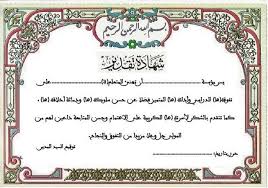 بسم الله الرحمن الرحيم
شهادة تقدير
يسر مؤسسة أن تهدي المتعلم(ة) على
تفوقه(ها) الدراسي ولأدائه (ها) المتميز فضلا عن حسن سلوكه (ها) ودماثة أخلاقه (ها)
كما تتقدم بالشكر لأسرته (ها) الكريمة على الاهتمام وحسن المتابعة داعين لهم من
المولى عز وجل مزيدا من التفوق والنجاح.
توقيع السيد المدير
حرر بتاريخ: